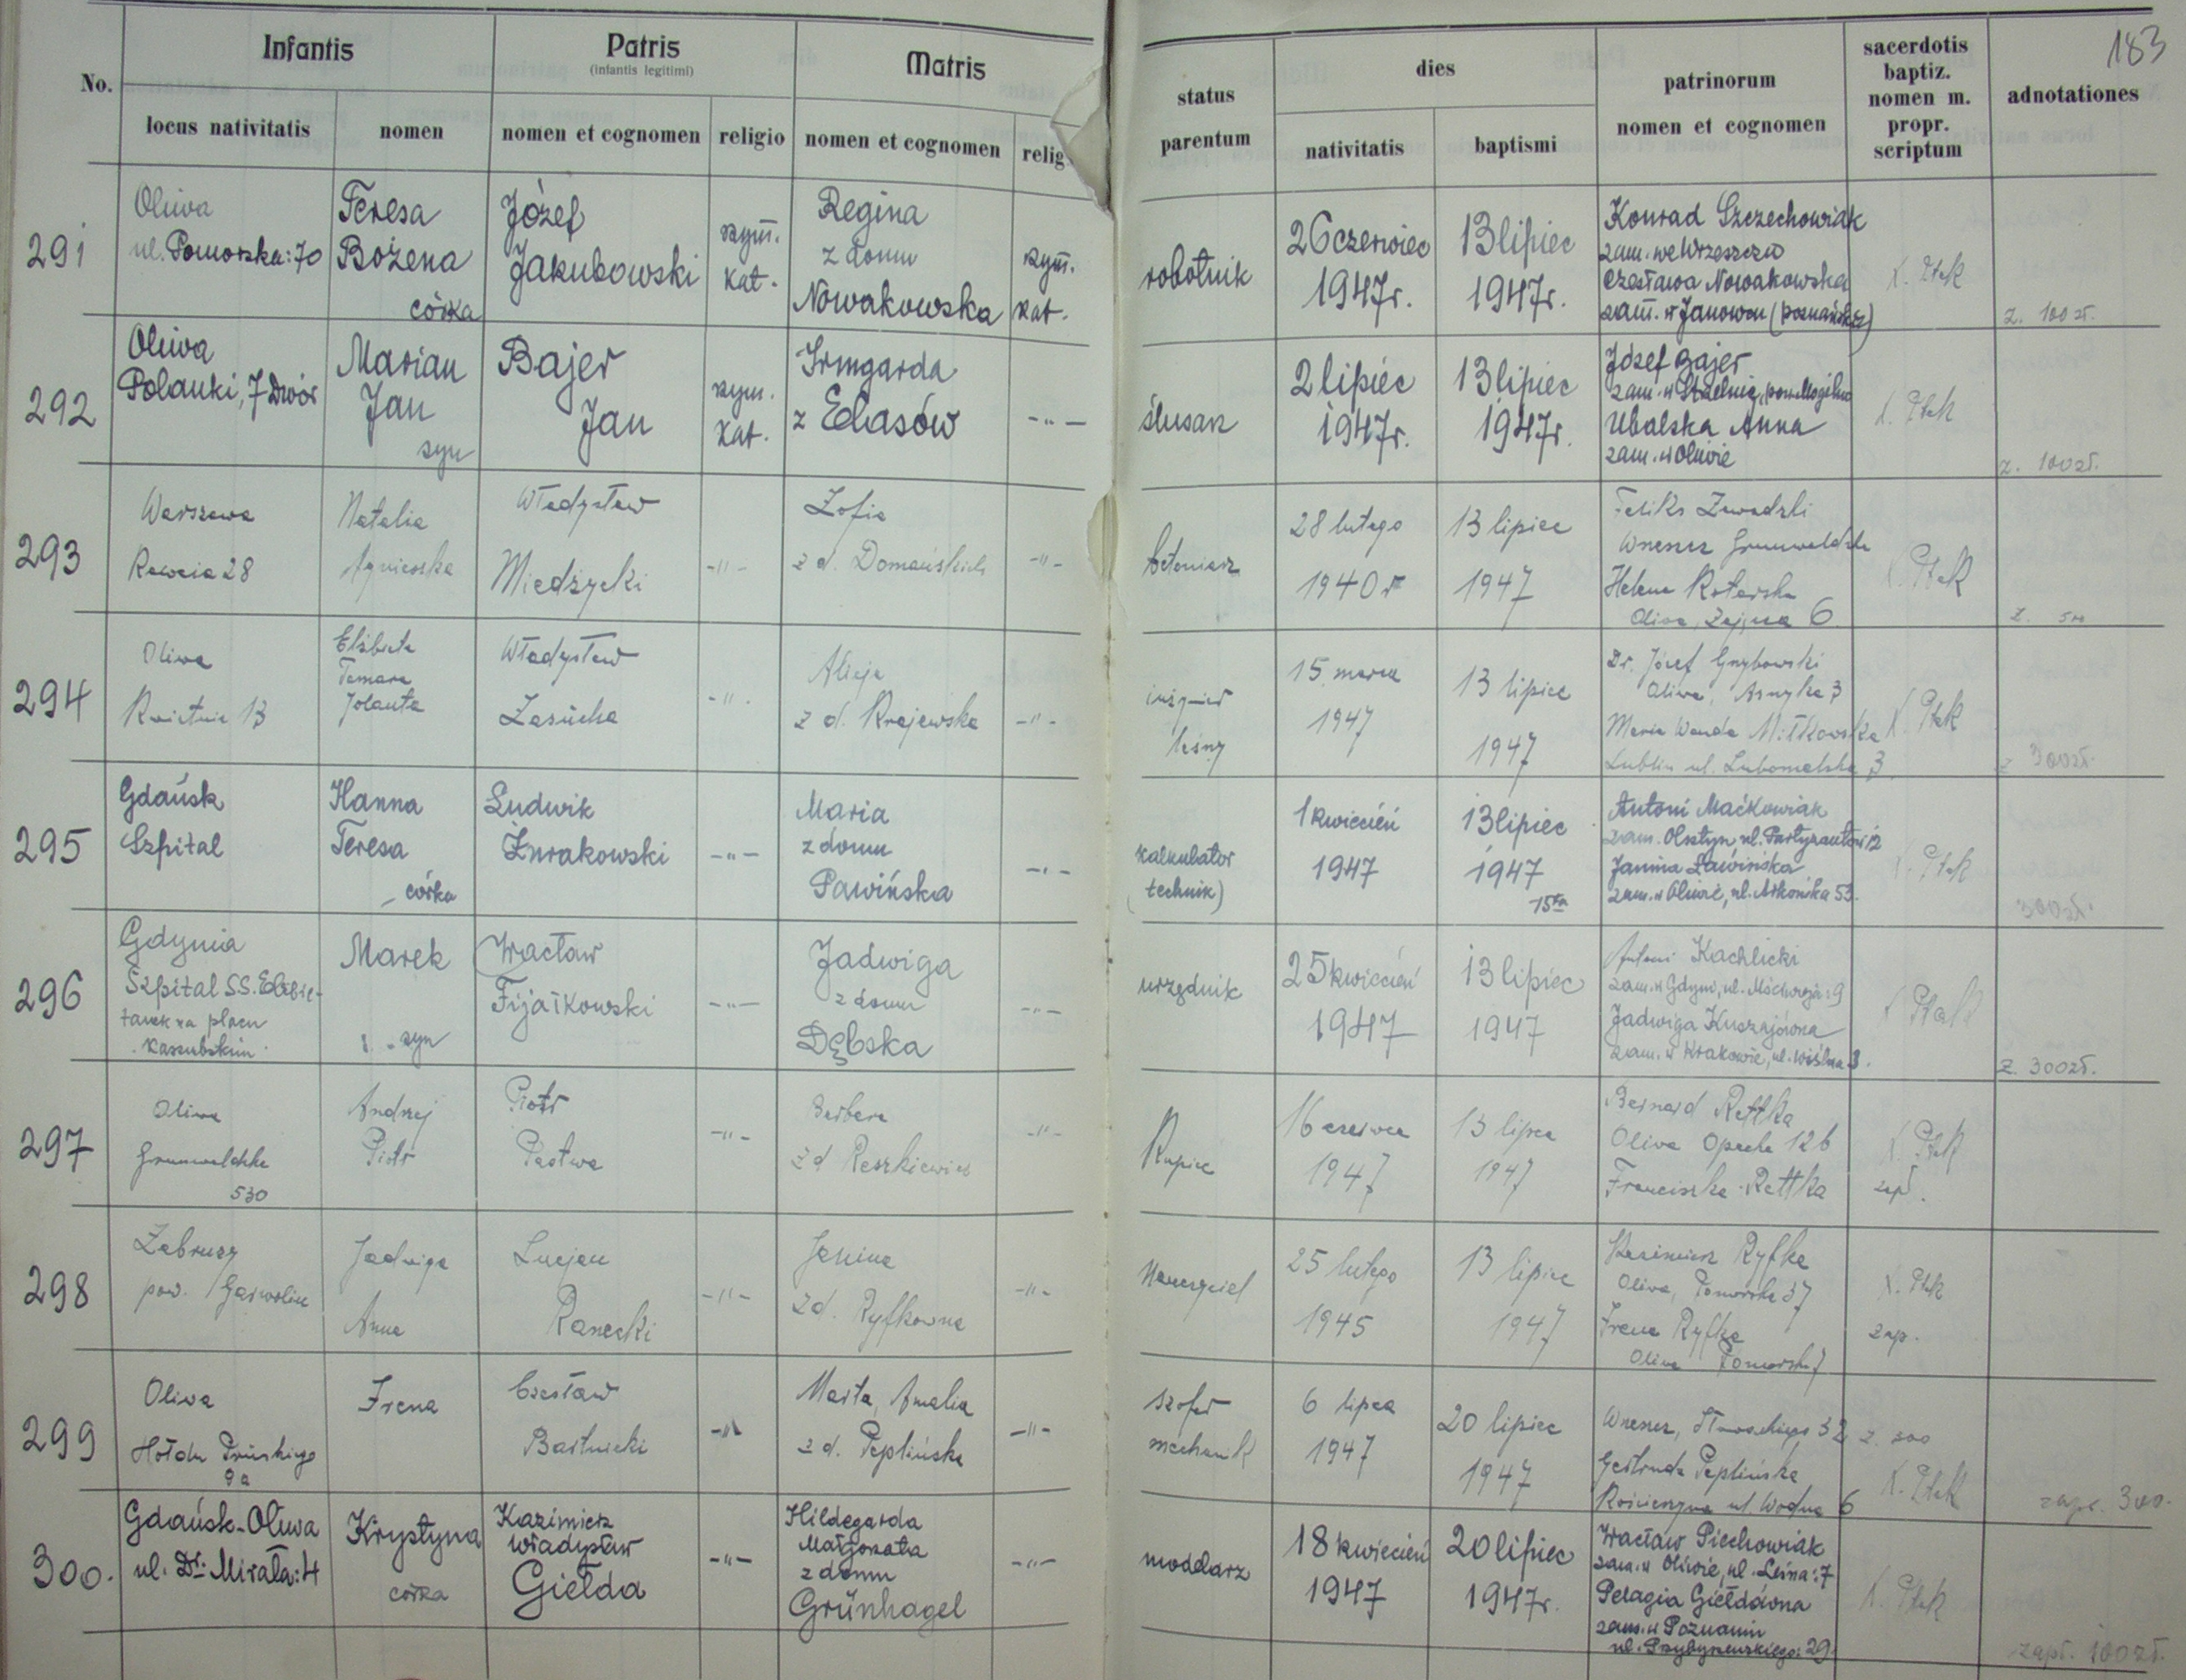 183
No.
Infantis
Patris
(infantis legitimi)
Matris
status
parentum
dies
patrinorum
nomen et cognomen
sacerdotis
baptiz.
nomen m.
propr.
scriptum
adnotationes
locus nativitatis
nomen
nomen et cognomen
religio
nomen et cognomen
relig
nativitatis
baptismi
291
Oliwa
ul. Pomorska: 70
Teresa
Bożena
córka
Józef
Jakubowski
rzym.
kat.
Regina
z domu
Nowakowska
rzym.
kat.
robotnik
26 czerwiec
1947r.
13 lipiec
1947r.
Konrad Szczechowiak
zam. we Wrzeszczu
Czesława Nowakowska
zam. w Janowcu (poznańskie)
X. Ptak
z. 100 zł.
292
Oliwa
Polanki, 7 Dwór
Marian
Jan
syn
Bajer
Jan
rzym.
kat.
Irmgarda
z Elasów
-"-
ślusarz
2 lipiec
1947r.
13 lipiec
1947r.
Józef Bajer
zam. w pow. Mogilno
Ubalska Anna
zam. w Oliwie
X. Ptak
z. 100 zł.
293
Warszawa
28
Natalia
Agnieszka
Władysław
Miedzycki
-"-
Zofia
z d. Domańskich
-"-
betoniarz
28 lutego
1940 r
13 lipiec
1947
Feliks Zawadzki
Wrzeszcz Grunwaldzka
Helena Rotarska
Oliwa, 6
X. Ptak
z.
294
Oliwa
Kwietnia 13
Elżbieta
Tamara
Jolanta
Władysław
Zasucha
-"-
Alicja
z d. Krajewska
-"-
inżynier
leśny
15 marca
1947
13 lipiec
1947
Dr. Józef Grzybowski
Oliwa, Asnyka 3
Maria Wanda Miłkowska
Lublin ul. Lubomelska 3
X. Ptak
z 300 zł.
295
Gdańsk
Szpital
Hanna
Teresa
córka
Ludwik
Żurakowski
-"-
Maria
z domu
Pawińska
-"-
kalkulator
(technik)
1 kwiecień
1947
13 lipiec
1947
Antoni Maćkowiak
zam. Olsztyn, ul. Partyzantów 12
Janina Ławińska
zam. w Oliwie, ul. Arkońska 53.
X. Ptak
300 zł.
296
Gdynia
Szpital SS. Elżbie-
tanek na placu
Kaszubskim
Marek
syn
Wacław
Fijałkowski
-"-
Jadwiga
z domu
Dębska
-"-
urzędnik
25 kwiecień
1947
13 lipiec
1947
Antoni Kachlicki
zam. w Gdyni, ul. Mściwoja: 9
Jadwiga Kusznjówna
zam. w Krakowie, ul. Wiślna 3.
X Ptak
z. 300 zł.
297
Oliwa
Grunwaldzka
530
Andrzej
Piotr
Piotr
Pastwa
-"-
Barbara
z d Reszkiewicz
-"-
Kupiec
16 czerwca
1947
13 lipca
1947
Bernard Rettka
Oliwa Opacka 12b
Franciszka Rettka
X. Ptak
zapł.
298
Zabruzy
pow. Garwolin
Jadwiga
Anna
Lucjan
Ranecki
-"-
Janina
z d. Ryfkówna
-"-
Nauczyciel
25 lutego
1945
13 lipiec
1947
Kazimierz Ryfka
Oliwa, Pomorska 37
Irena Ryfka
Oliwa Pomorska 7
X. Ptak
zap.
299
Oliwa
Hołdu Pruskiego
9a
Irena
Czesław
Bartnicki
-"-
Marta, Amalia
z d. Peplińska
-"-
szofer
mechanik
6 lipca
1947
20 lipiec
1947
Wrzeszcz, 32
Gertruda Peplińska
Kościerzyna ul. Wodna 6
z. 300
X. Ptak
zapł. 300.
300.
Gdańsk-Oliwa
ul. Dr. Mirała: 4
Krystyna
córka
Kazimierz
Władysław
Giełda
-"-
Hildegarda
Małgorzata
z domu
Grünhagel
-"-
modelarz
18 kwiecień
1947
20 lipiec
1947r.
Wacław Piechowiak
zam. w Oliwie, ul. Leśna: 7
Pelagia Giełdówna
zam. w Poznaniu
ul. Przybyszewskiego: 29.
X. Ptak
zapł. 100 zł.